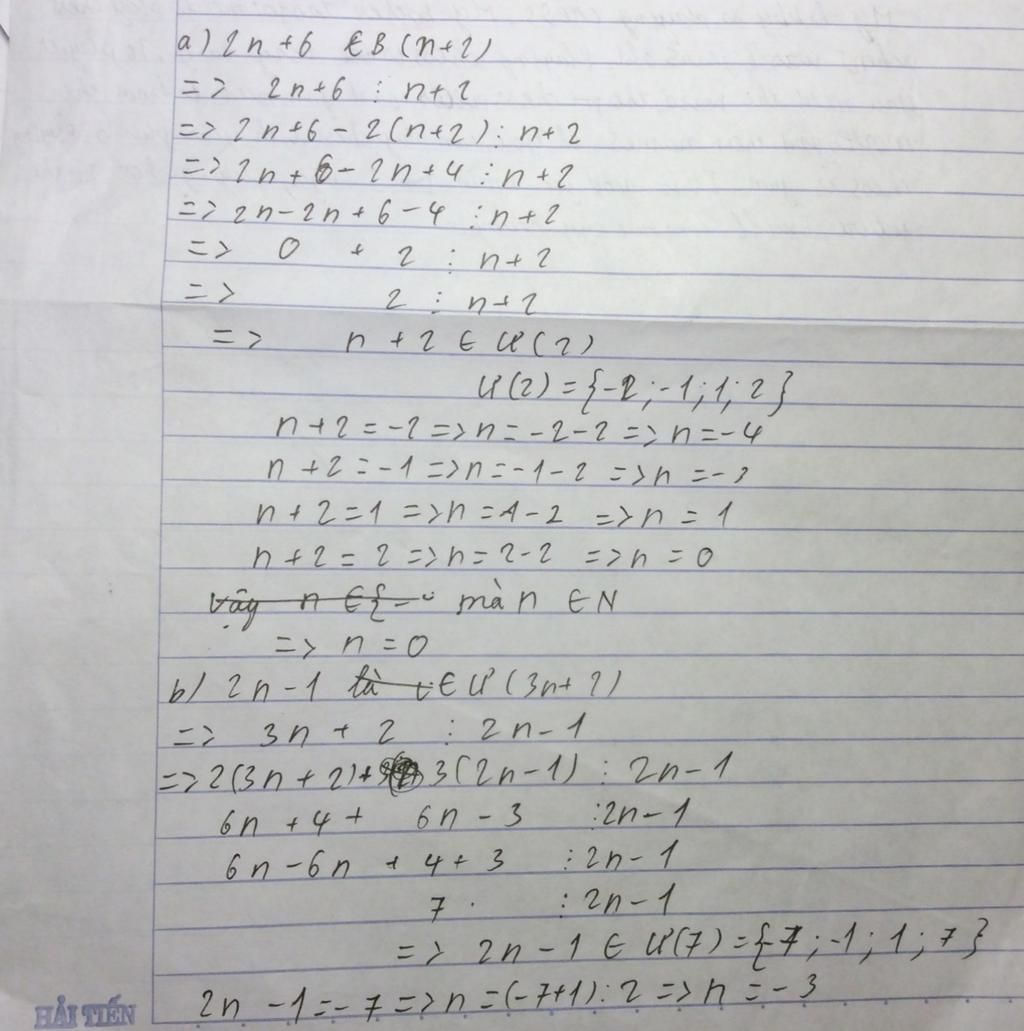 a) 2n+6 ∈ B(n+2)
=> 2n+6 ⋮ n+2
=> 2n+6 - 2(n+2) ⋮ n+2
=> 2n+6 - 2n+4 ⋮ n+2
=> 2n-2n+6-4 ⋮ n+2
=> 0 + 2 ⋮ n+2
=> 2 ⋮ n+2
=> n+2 ∈ Ư(2)
Ư(2) = {-2; -1; 1; 2}
n+2 = -2 => n = -2-2 => n = -4
n+2 = -1 => n = -1-2 => n = -3
n+2 = 1 => n = 1-2 => n = 1
n+2 = 2 => n = 2-2 => n = 0
Vậy n ∈ {- mà n ∈ N
=> n = 0
b) 2n-1 là ∈ Ư(3n+2)
=> 3n+2 ⋮ 2n-1
=> 2(3n+2) + 3(2n-1) ⋮ 2n-1
6n+4 + 6n-3 ⋮ 2n-1
6n-6n + 4+3 ⋮ 2n-1
7 ⋮ 2n-1
=> 2n-1 ∈ Ư(7) = {-7; -1; 1; 7}
2n-1 = -7 => n = (-7+1):2 => n = -3
HẢI TIẾN